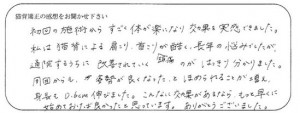 猫背矯正の感想をお聞かせ下さい
初回の施術からすごく体が楽になり効果を実感できました。
私は猫背による肩こり、首こりが酷く、長年の悩みでしたが、
通院するうちに改善されていく のがはっきり分かりました。
頭痛
周囲からも、姿勢が良くなった、とほめられることが増え、
身長も0.6cm伸びました。こんなに効果があるなら、もっと早くに
始めておけば良かったと思っています。ありがとうございました。